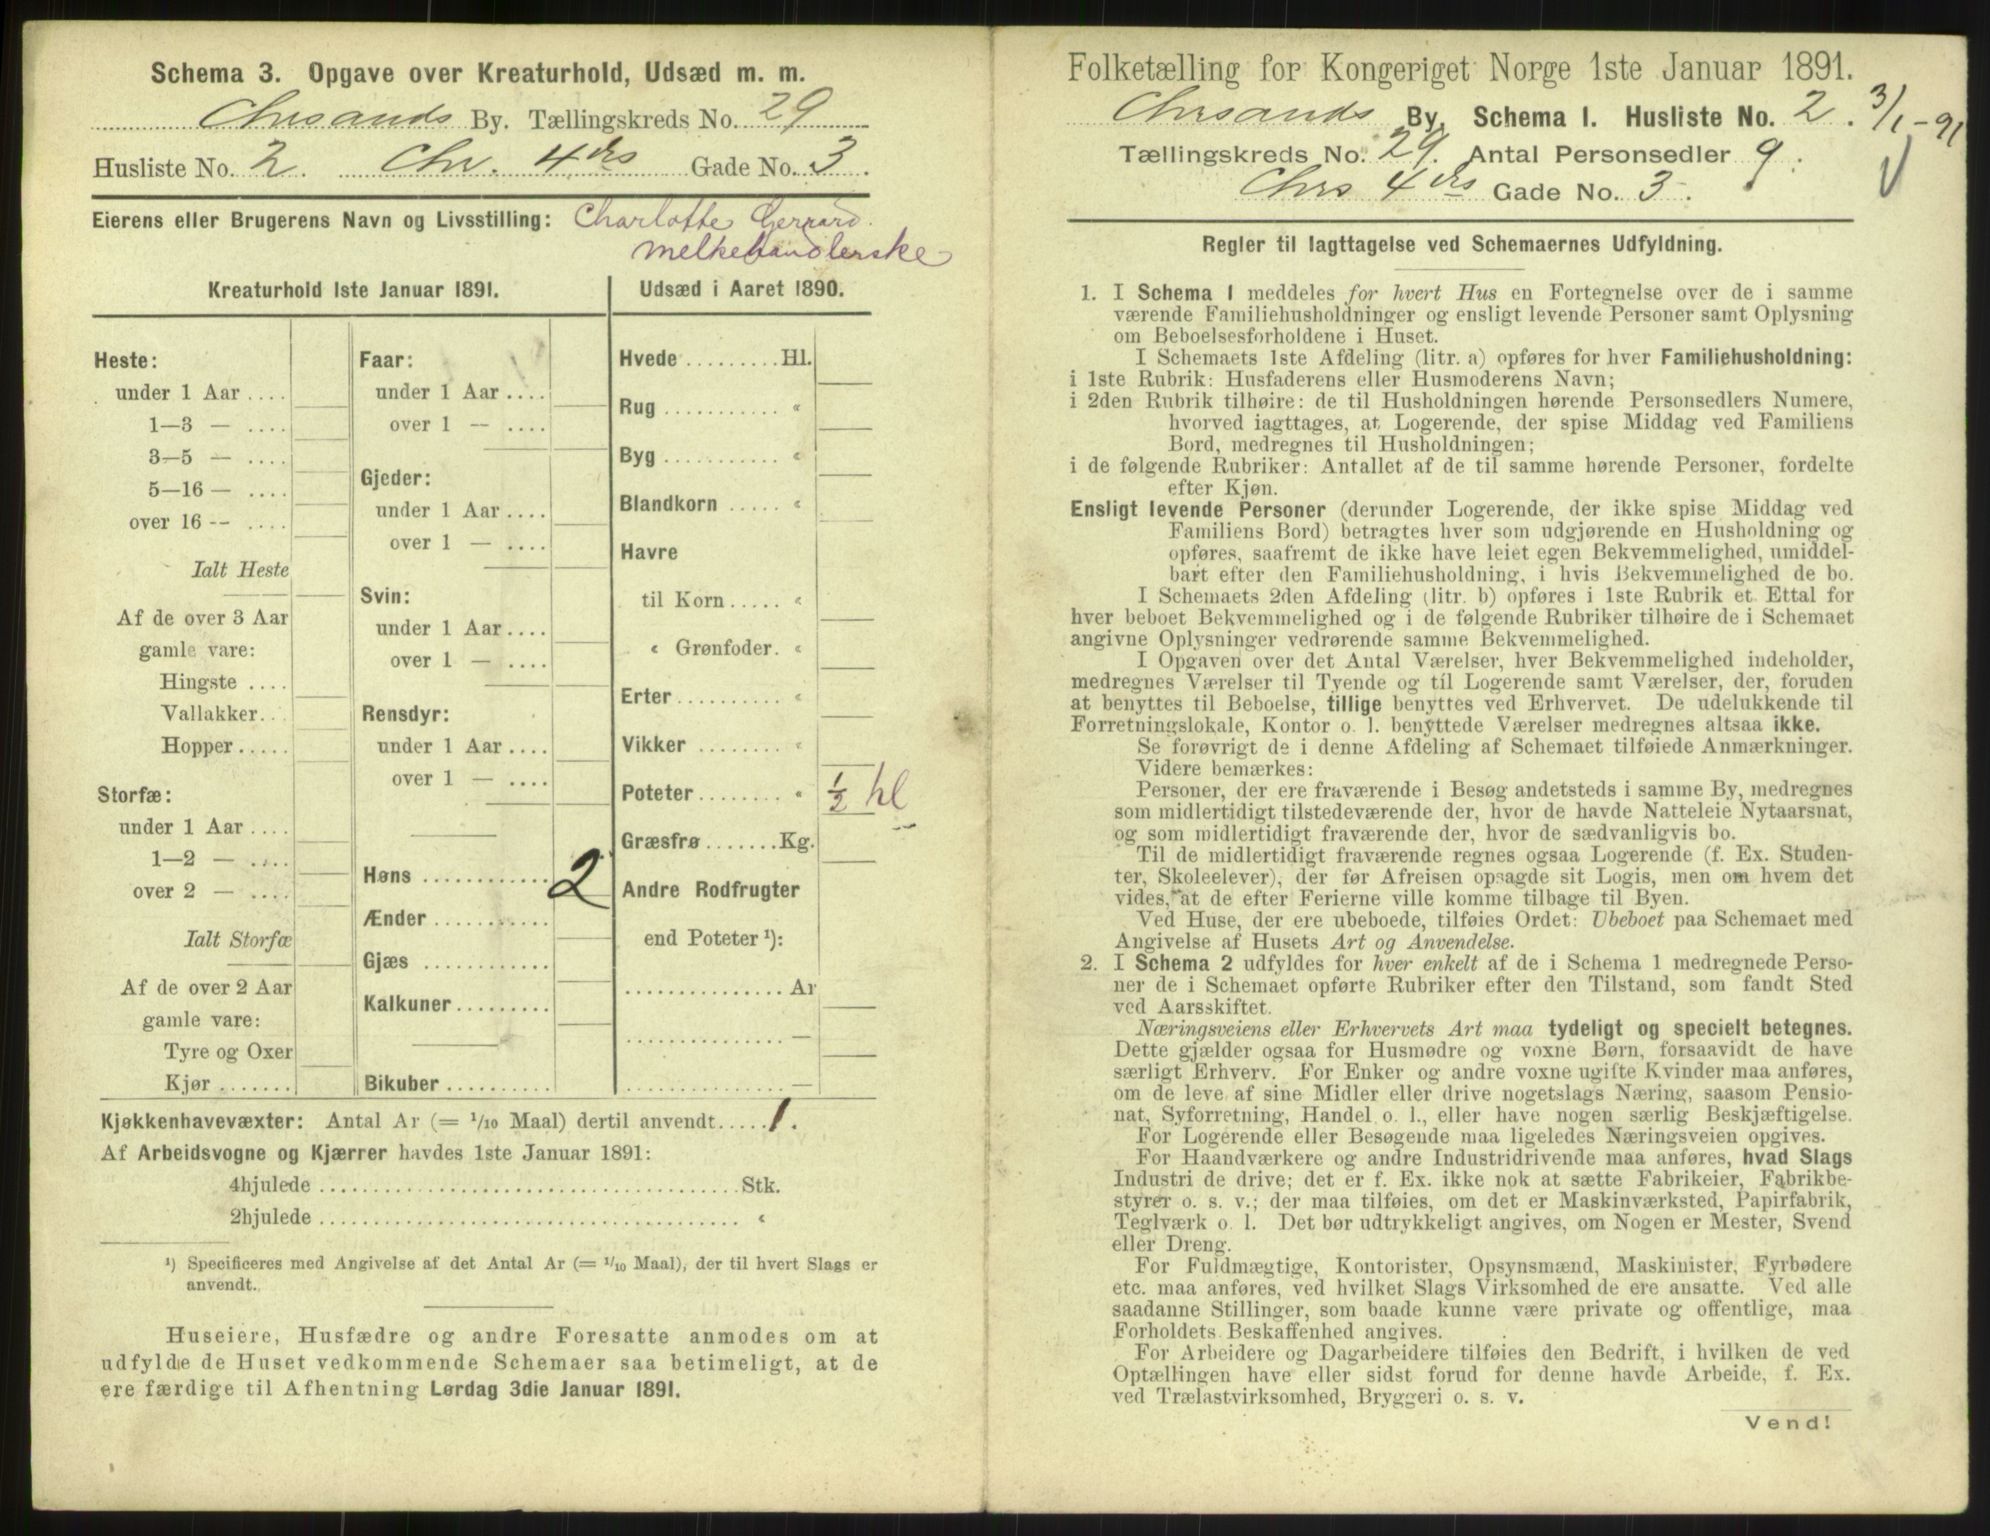 Schema 3. Opgave over Kreaturhold, Udsæd m. m.
Chrsands By. Tællingskreds No. 29
Husliste No. 2. Chr. 4des Gade No. 3.
Eierens eller Brugerens Navn og Livsstilling: Charlotte Gerrard.
Melkehandlerske
Kreaturhold 1ste Januar 1891.
Heste:
under 1 Aar ....
1—3 — ....
3—5 — ....
5—16 — ....
over 16 -- ....
Ialt Heste
Af de over 3 Aar
gamle vare:
Hingste ....
Vallakker...
Hopper.....
Storfæ:
under 1 Aar ....
1—2 — ....
over 2 — ....
Ialt Storfæ
Af de over 2 Aar
gamle vare:
Tyre og Oxer
Kjør .......
Faar:
under 1 Aar ....
over 1 — ....
Gjeder:
under 1 Aar ....
over 1 — ....
Svin:
under 1 Aar ....
over 1 — ....
Rensdyr:
under 1 Aar ....
over 1 — ....
Høns ............ 2
Ænder ...........
Gjæs ............
Kalkuner .........
Bikuber ..........
Udsæd i Aaret 1890.
Hvede ......... Hl.
Rug ........... «
Byg ........... «
Blandkorn ..... «
Havre
til Korn ..... «
« Grønfoder. «
Erter .......... «
Vikker ........ «
Poteter ........ « ½ hl
Græsfrø ....... Kg.
Andre Rodfrugter
end Poteter ¹):
............... Ar
............... —
............... —
Kjøkkenhavevæxter: Antal Ar (= 1/10 Maal) dertil anvendt ..... 1.
Af Arbeidsvogne og Kjærrer havdes 1ste Januar 1891:
4hjulede ........................................ Stk.
2hjulede ........................................ «
¹) Specificeres med Angivelse af det Antal Ar (= 1/10 Maal), der til hvert Slags er
anvendt.
Huseiere, Husfædre og andre Foresatte anmodes om at
udfylde de Huset vedkommende Schemaer saa betimeligt, at de
ere færdige til Afhentning Lørdag 3die Januar 1891.
Folketælling for Kongeriget Norge 1ste Januar 1891.
Chrsands By. Schema I. Husliste No. 2. 3/1-91
Tællingskreds No. 29. Antal Personsedler 9.
Chrs 4des Gade No. 3.
Regler til Iagttagelse ved Schemaernes Udfyldning.
1. I Schema I meddeles for hvert Hus en Fortegnelse over de i samme
værende Familiehusholdninger og ensligt levende Personer samt Oplysning
om Beboelsesforholdene i Huset.
I Schemaets 1ste Afdeling (litr. a) opføres for hver Familiehusholdning:
i 1ste Rubrik: Husfaderens eller Husmoderens Navn;
i 2den Rubrik tilhøire: de til Husholdningen hørende Personsedlers Numere,
hvorved iagttages, at Logerende, der spise Middag ved Familiens
Bord, medregnes til Husholdningen;
i de følgende Rubriker: Antallet af de til samme hørende Personer, fordelte
efter Kjøn.
Ensligt levende Personer (derunder Logerende, der ikke spise Middag ved
Familiens Bord) betragtes hver som udgjørende en Husholdning og
opføres, saafremt de ikke have leiet egen Bekvemmelighed, umiddel-
bart efter den Familiehusholdning, i hvis Bekvemmelighed de bo.
I Schemaets 2den Afdeling (litr. b) opføres i 1ste Rubrik et Ettal for
hver beboet Bekvemmelighed og i de følgende Rubriker tilhøire de i Schemaet
angivne Oplysninger vedrørende samme Bekvemmelighed.
I Opgaven over det Antal Værelser, hver Bekvemmelighed indeholder,
medregnes Værelser til Tyende og til Logerende samt Værelser, der, foruden
at benyttes til Beboelse, tillige benyttes ved Erhvervet. De udelukkende til
Forretningslokale, Kontor o. l. benyttede Værelser medregnes altsaa ikke.
Se forøvrigt de i denne Afdeling af Schemaet tilføiede Anmærkninger.
Videre bemærkes:
Personer, der ere fraværende i Besøg andetsteds i samme By, medregnes
som midlertidigt tilstedeværende der, hvor de havde Natteleie Nytaarsnat,
og som midlertidigt fraværende der, hvor de sædvanligvis bo.
Til de midlertidigt fraværende regnes ogsaa Logerende (f. Ex. Studen-
ter, Skoleelever), der før Afreisen opsagde sit Logis, men om hvem det
vides, at de efter Ferierne ville komme tilbage til Byen.
Ved Huse, der ere ubeboede, tilføies Ordet: Ubeboet paa Schemaet med
Angivelse af Husets Art og Anvendelse.
2. I Schema 2 udfyldes for hver enkelt af de i Schema 1 medregnede Perso-
ner de i Schemaet opførte Rubriker efter den Tilstand, som fandt Sted
ved Aarsskiftet.
Næringsveiens eller Erhvervets Art maa tydeligt og specielt betegnes.
Dette gjælder ogsaa for Husmødre og voxne Børn, forsaavidt de have
særligt Erhverv. For Enker og andre voxne ugifte Kvinder maa anføres,
om de leve af sine Midler eller drive nogetslags Næring, saasom Pensio-
nat, Syforretning, Handel o. l., eller have nogen særlig Beskjæftigelse.
For Logerende eller Besøgende maa ligeledes Næringsveien opgives.
For Haandværkere og andre Industridrivende maa anføres, hvad Slags
Industri de drive; det er f. Ex. ikke nok at sætte Fabrikeier, Fabrikbe-
styrer o. s. v.; der maa tilføies, om det er Maskinværksted, Papirfabrik,
Teglværk o. l. Det bør udtrykkeligt angives, om Nogen er Mester, Svend
eller Dreng.
For Fuldmægtige, Kontorister, Opsynsmænd, Maskinister, Fyrbødere
etc. maa anføres, ved hvilket Slags Virksomhed de ere ansatte. Ved alle
saadanne Stillinger, som baade kunne være private og offentlige, maa
Forholdets Beskaffenhed angives.
For Arbeidere og Dagarbeidere tilføies den Bedrift, i hvilken de ved
Optællingen have eller sidst forud for denne havde Arbeide, f. Ex.
ved Trælastvirksomhed, Bryggeri o. s. v.
Vend!